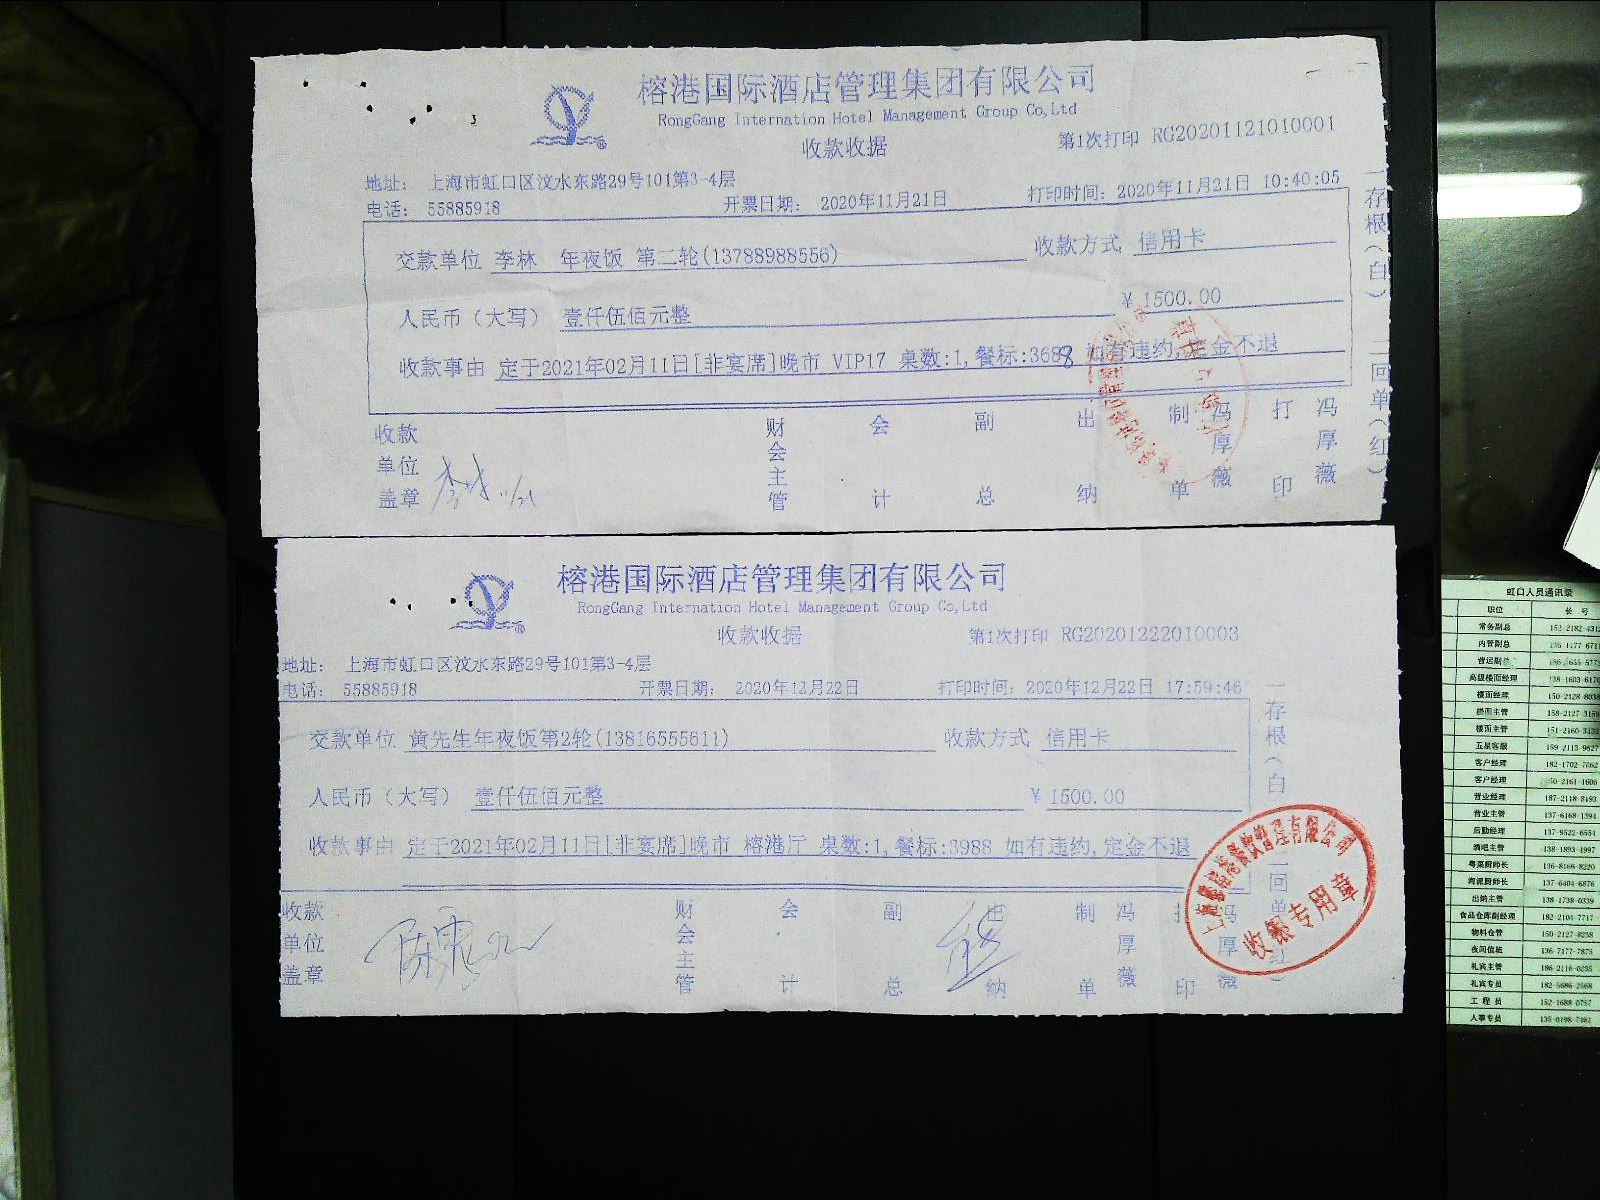 榕港国际酒店管理集团有限公司
RongGang Internation Hotel Management Group Co,Ltd
收款收据
第1次打印 RG20201121010001
地址： 上海市虹口区汶水东路29号101第3-4层
电话： 55885918
开票日期： 2020年11月21日
打印时间：2020年11月21日 10:40:05
交款单位 李林 年夜饭 第二轮(13788988556)
收款方式 信用卡
人民币（大写） 壹仟伍佰元整
￥ 1500.00
收款事由 定于2021年02月11日[非宴席]晚市 VIP17 桌数:1,餐标:3688 如有违约,定金不退
收款单位盖章
李林 11/21
财会主管
会计
副总
出纳
制单
冯厚薇
打印
冯厚薇
一存根（白） 二回单（红）
榕港国际酒店管理集团有限公司
RongGang Internation Hotel Management Group Co,Ltd
收款收据
第1次打印 RG20201222010003
地址： 上海市虹口区汶水东路29号101第3-4层
电话： 55885918
开票日期： 2020年12月22日
打印时间：2020年12月22日 17:59:46
交款单位 黄先生年夜饭第2轮(13816555611)
收款方式 信用卡
人民币（大写） 壹仟伍佰元整
￥ 1500.00
收款事由 定于2021年02月11日[非宴席]晚市 榕港厅 桌数:1,餐标:3988 如有违约,定金不退
收款单位盖章
财会主管
会计
副总
出纳
制单
冯厚薇
打印
冯厚薇
一存根（白 二回单（红）
专用章
虹口人员通讯录
职位 长 号
常务副总
内管副总
营运副总
高级楼面经理
楼面经理
楼面主管
楼面主管
五星客服
客户经理
客户经理
营业经理
营业主管
后勤经理
酒吧主管
粤菜厨师长
海派厨师长
出纳主管
食品仓库副经理
物料仓管
夜间值班
礼宾主管
礼宾专员
工 程 员
人事专员